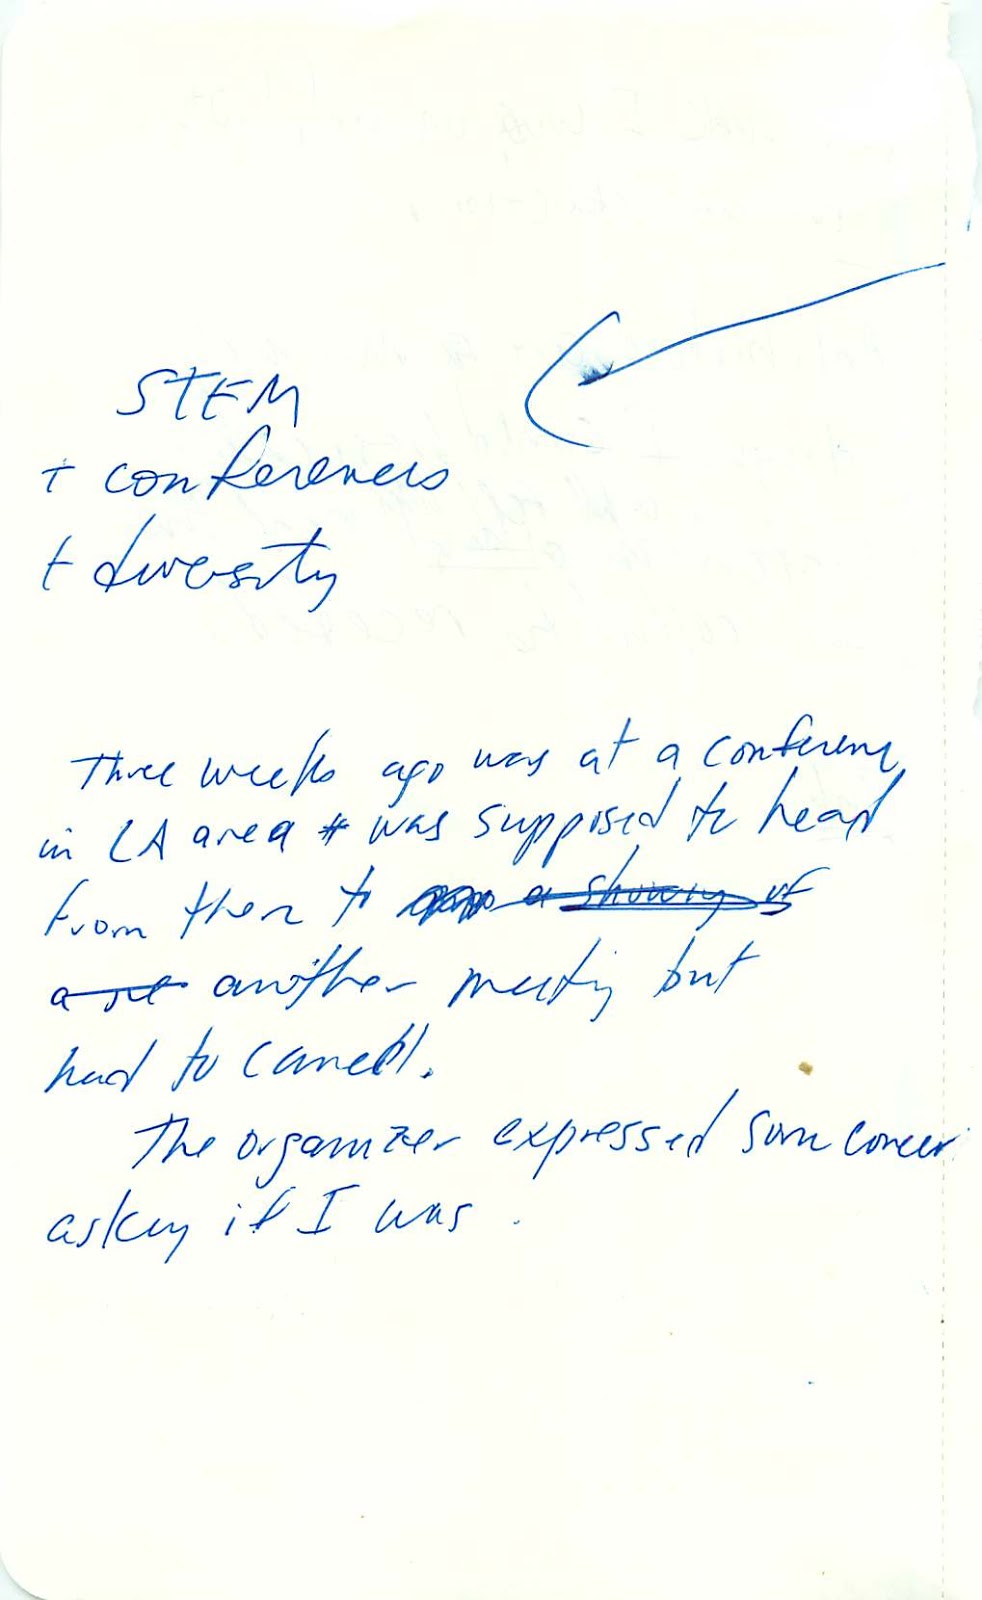 STEM
+ conferences
+ diversity
Three weeks ago was at a conference
in LA area # was supposed to head
from there to a showing of
a another meeting but
had to cancel.
The organizer expressed some concern
asking if I was .